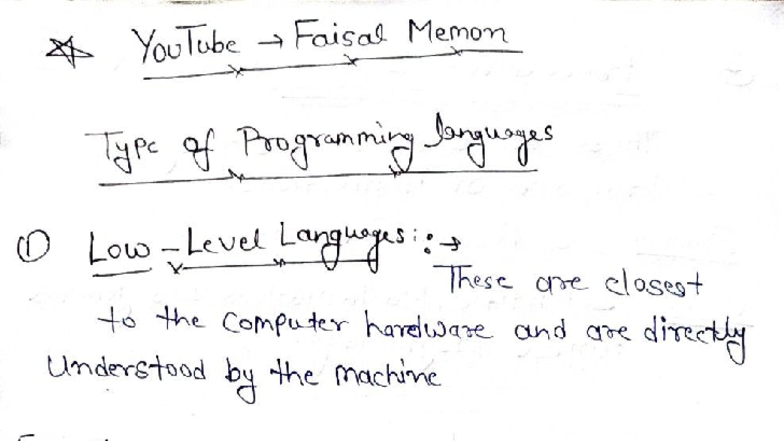 YouTube → Faisal Memon
Type of Programming languages
① Low-Level Languages::→
These are closest
to the computer hardware and are directly
Understood by the machine